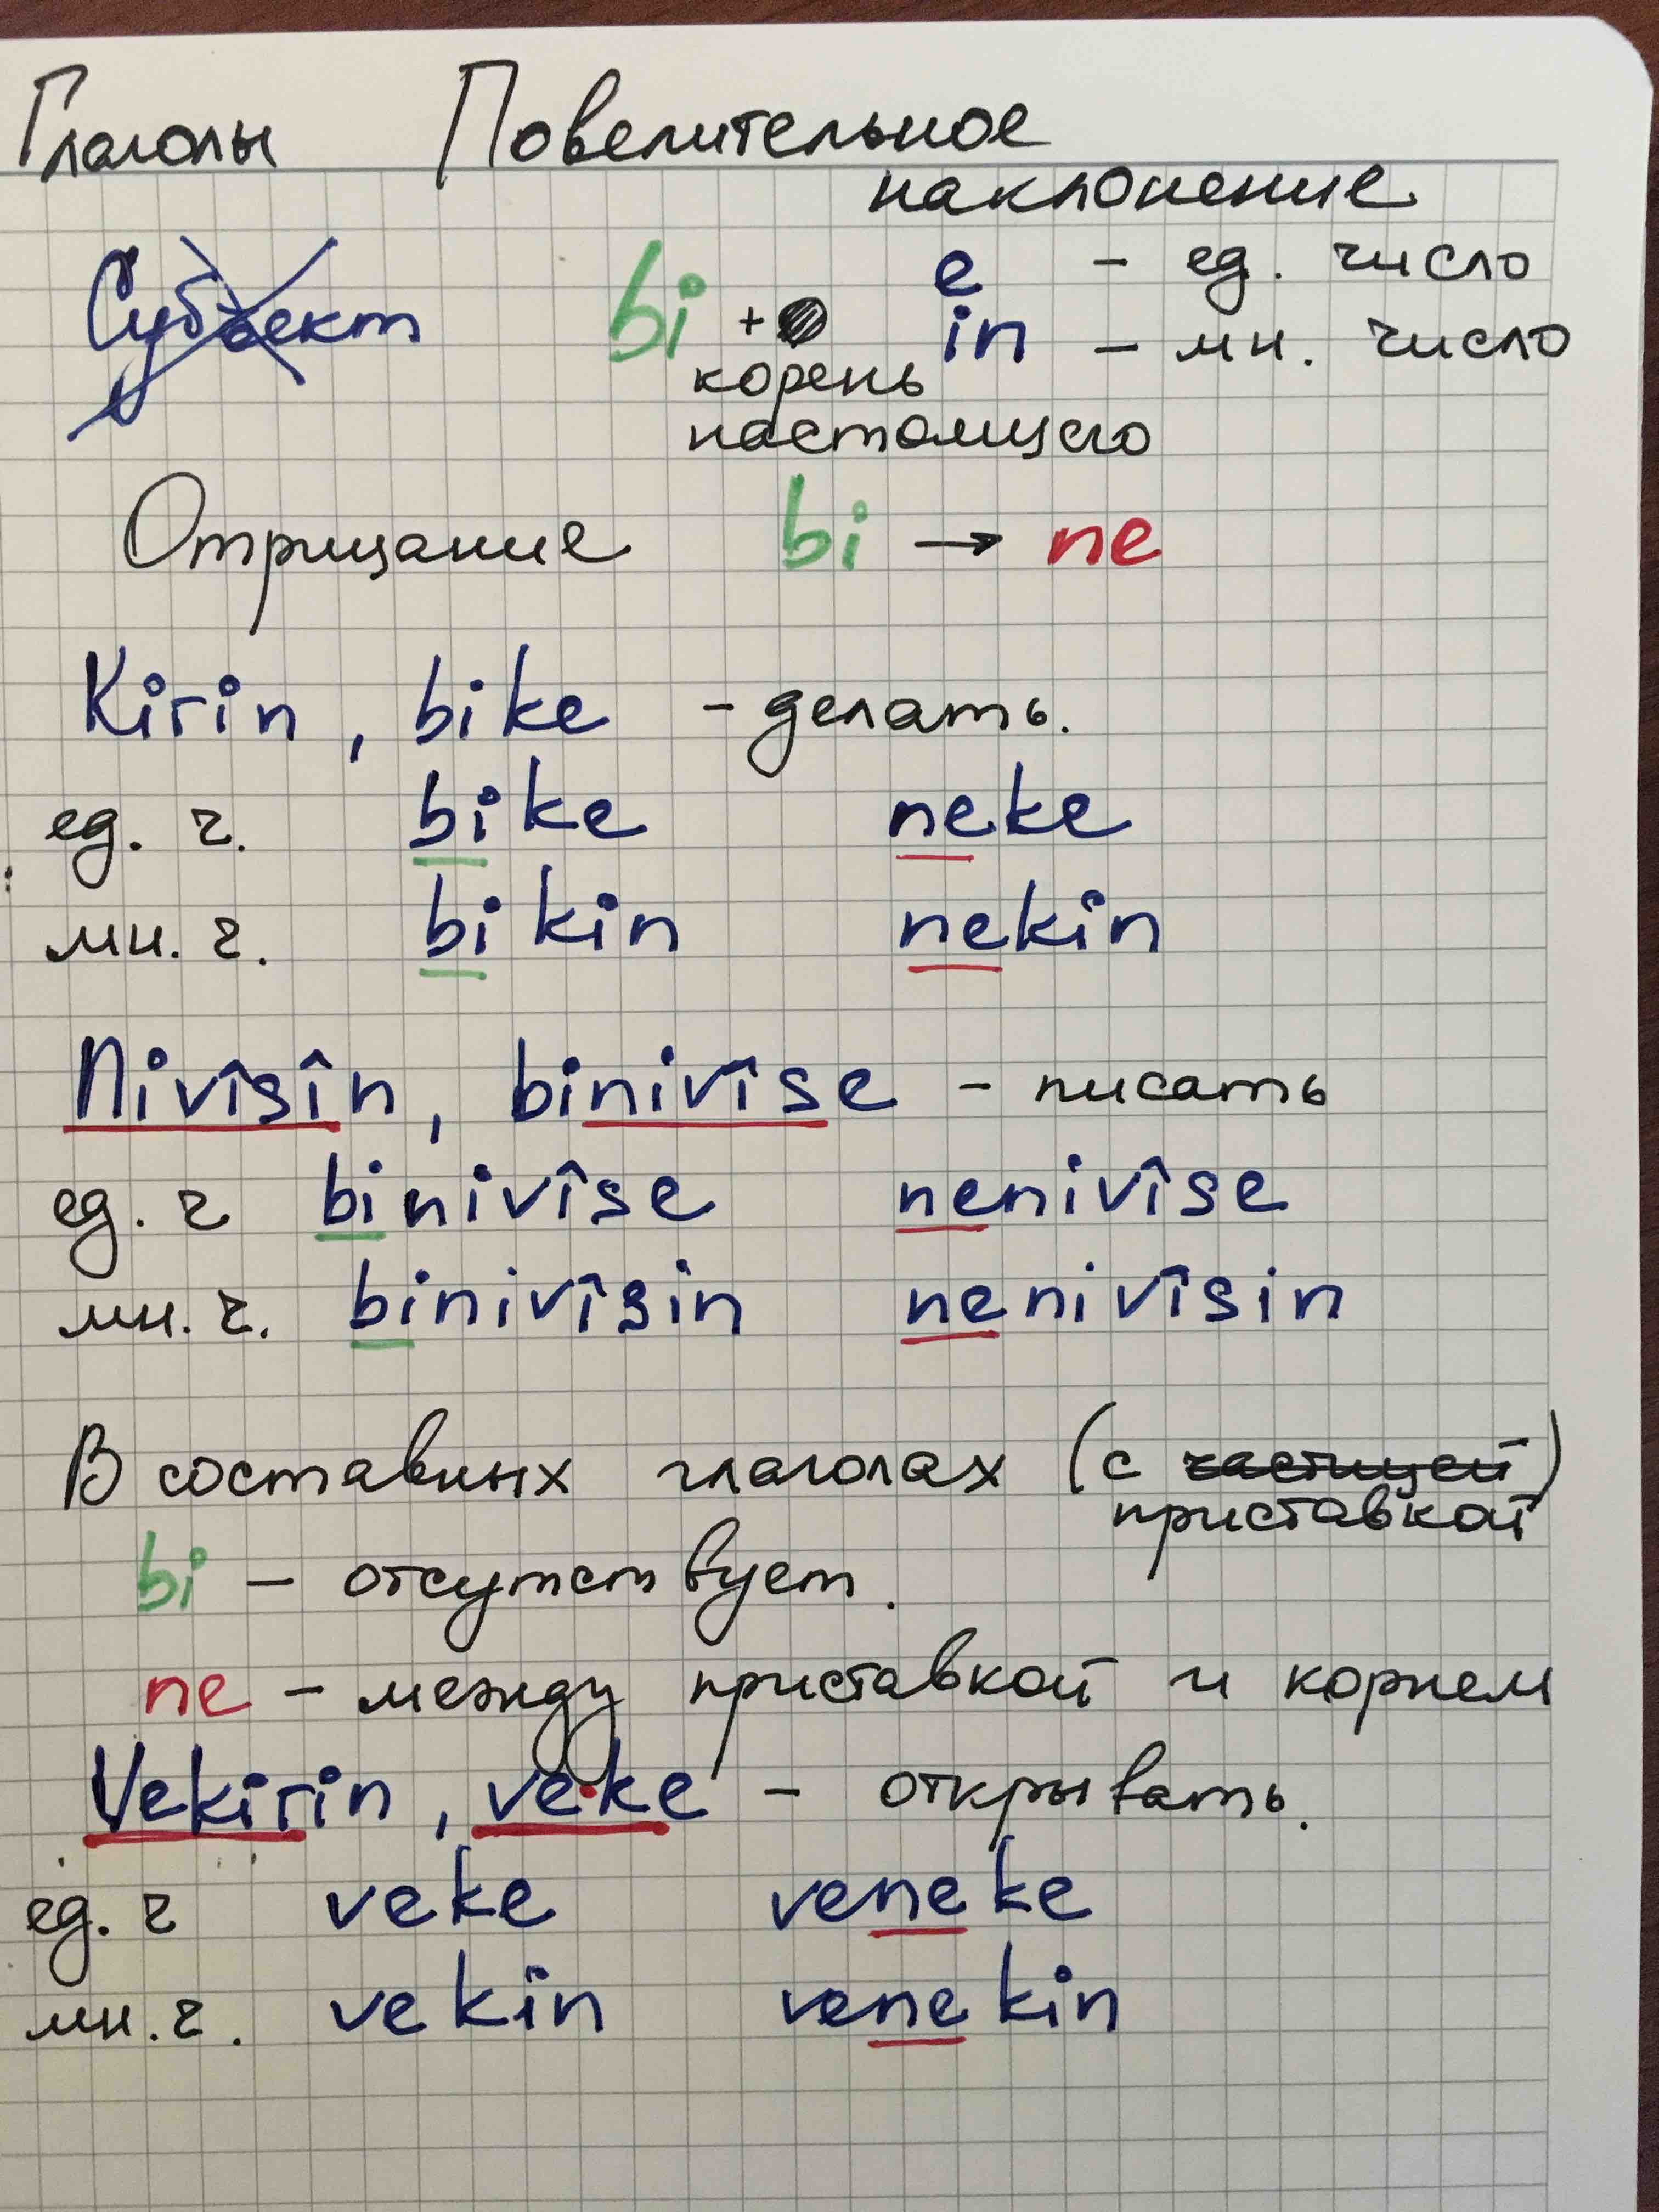 Глаголы Повелительное
наклонение
Субъект bi + e - ед. число
in - мн. число
корень
настоящего
Отрицание bi → ne
Kirin, bike - делать.
ед. ч. bike neke
мн. ч. bikin nekin
Nivîsîn, binivîse - писать
ед. ч binivîse nenivîse
мн. ч. binivîsin nenivîsin
В составных глаголах (с частицей)
приставкой
bi - отсутствует.
ne - между приставкой и корнем
Vekirin, veke - открывать.
ед. ч veke veneke
мн. ч. vekin venekin